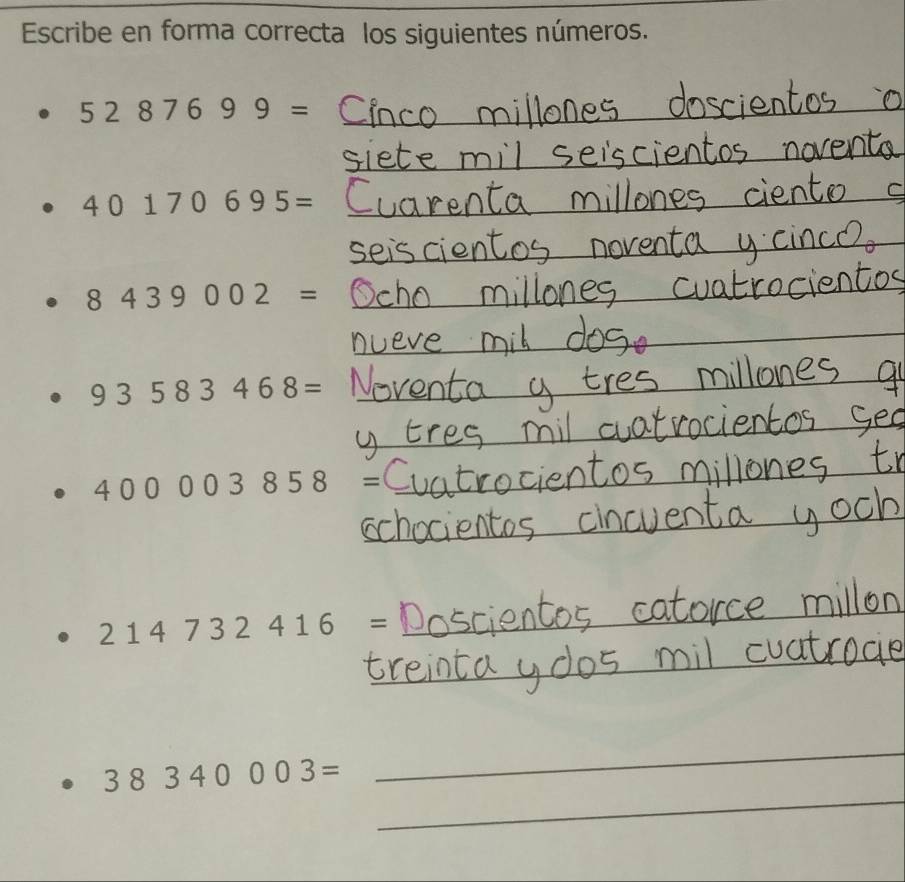 Escribe en forma correcta los siguientes números.
• 5 2 8 7 6 9 9 = Cinco millones doscientos o
siete mil seiscientos noventa
• 4 0 1 7 0 6 9 5 = Cuarenta millones ciento
seiscientos noventa y cinco.
• 8 4 3 9 0 0 2 = Ocho millones cuatrocientos
nueve mil dos.
• 9 3 5 8 3 4 6 8 = Noventa y tres millones qu
y tres mil cuatrocientos ses
• 4 0 0 0 0 3 8 5 8 = Cuatrocientos millones tr
ochocientos cincuenta y och
• 2 1 4 7 3 2 4 1 6 = Doscientos catorce millon
treinta y dos mil cuatrocie
• 3 8 3 4 0 0 0 3 =